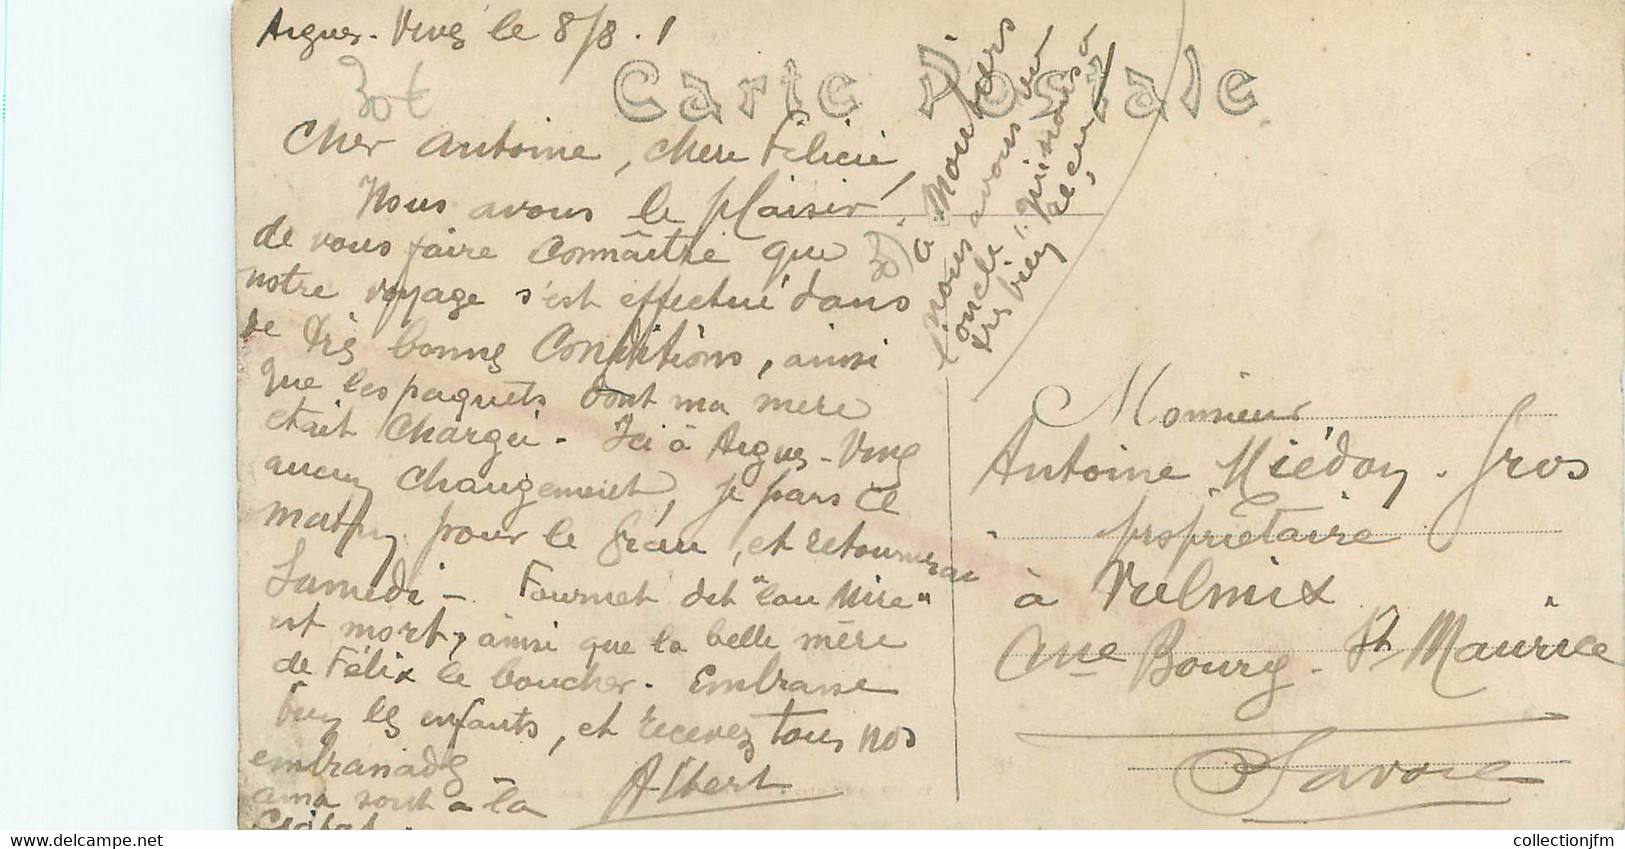 Aigues-Vives le 8/8.1
30€
Carte Postale
Cher Antoine, chère Félicie,
Nous avons le plaisir
de vous faire connaître que
notre voyage s'est effectué dans
de très bonnes Conditions, ainsi
que les paquets dont ma mère
était chargée. Ici à Aigues-Vives
aucun changement, je pars ce
matin pour le Grau, et retournerai
Samedi - Fournet dit "lou
est mort, ainsi que la belle mère
de Félix le boucher. Embrasse
bien les enfants, et recevez tous nos
embrassades
Albert
sont à la
à Moutiers
nous avons vu
oncle
très bien
Monsieur
Antoine Miédan-Gros
propriétaire
à Vulmix
Cne Bourg-St Maurice
Savoie
collectionjfm